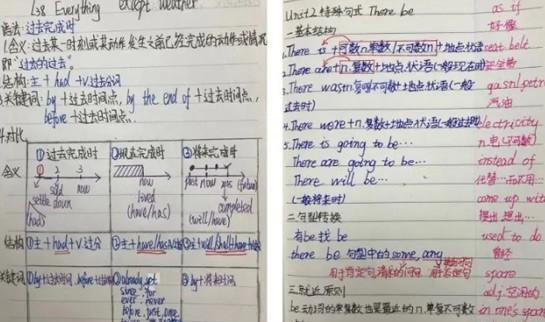 L38 Everything except weather
语法:过去完成时
1.含义:过去某一时刻或某动作发生之前已经完成的动作或情况
即"过去的过去"。
结构:主+had+v.过去分词
3.关键词:by+过去时间点, by the end of+过去时间点,
before+过去时间点.
4.对比
①过去完成时 ②现在完成时 ③将来完成时
含义
1 2 3
now
past now (future)
settle down
lived
completed
(had)
(have/has)
(will/have)
结构 ①主+had+v.过分 ②主+have/has
关键词 already, yet
since, for
ever, never
before, just, once
Unit2 特殊句式 There be
一.基本结构
1.There is +可数n.单数/不可数n.+地点状语
2.There are+n.复数+地点状语(一般现在时)
3.There was+n.单/不可数+地点状语(一般
过去时)
4.There were+n.复数+地点状语(一般过去时)
5.There is going to be…
There are going to be…
There will be…
(一般将来时)
二.句型转换
有be找be
there be 句型中的some, any
三.就近原则
be动词的单复数由最近的n.单复不可数
as if
好像
seat belt
安全带
gas\petrol
汽油
electricity
n.电(不可数)
instead of
代替
come up with
提出 想出…
used to do
曾经
spare
adj.空闲的
in one's spare